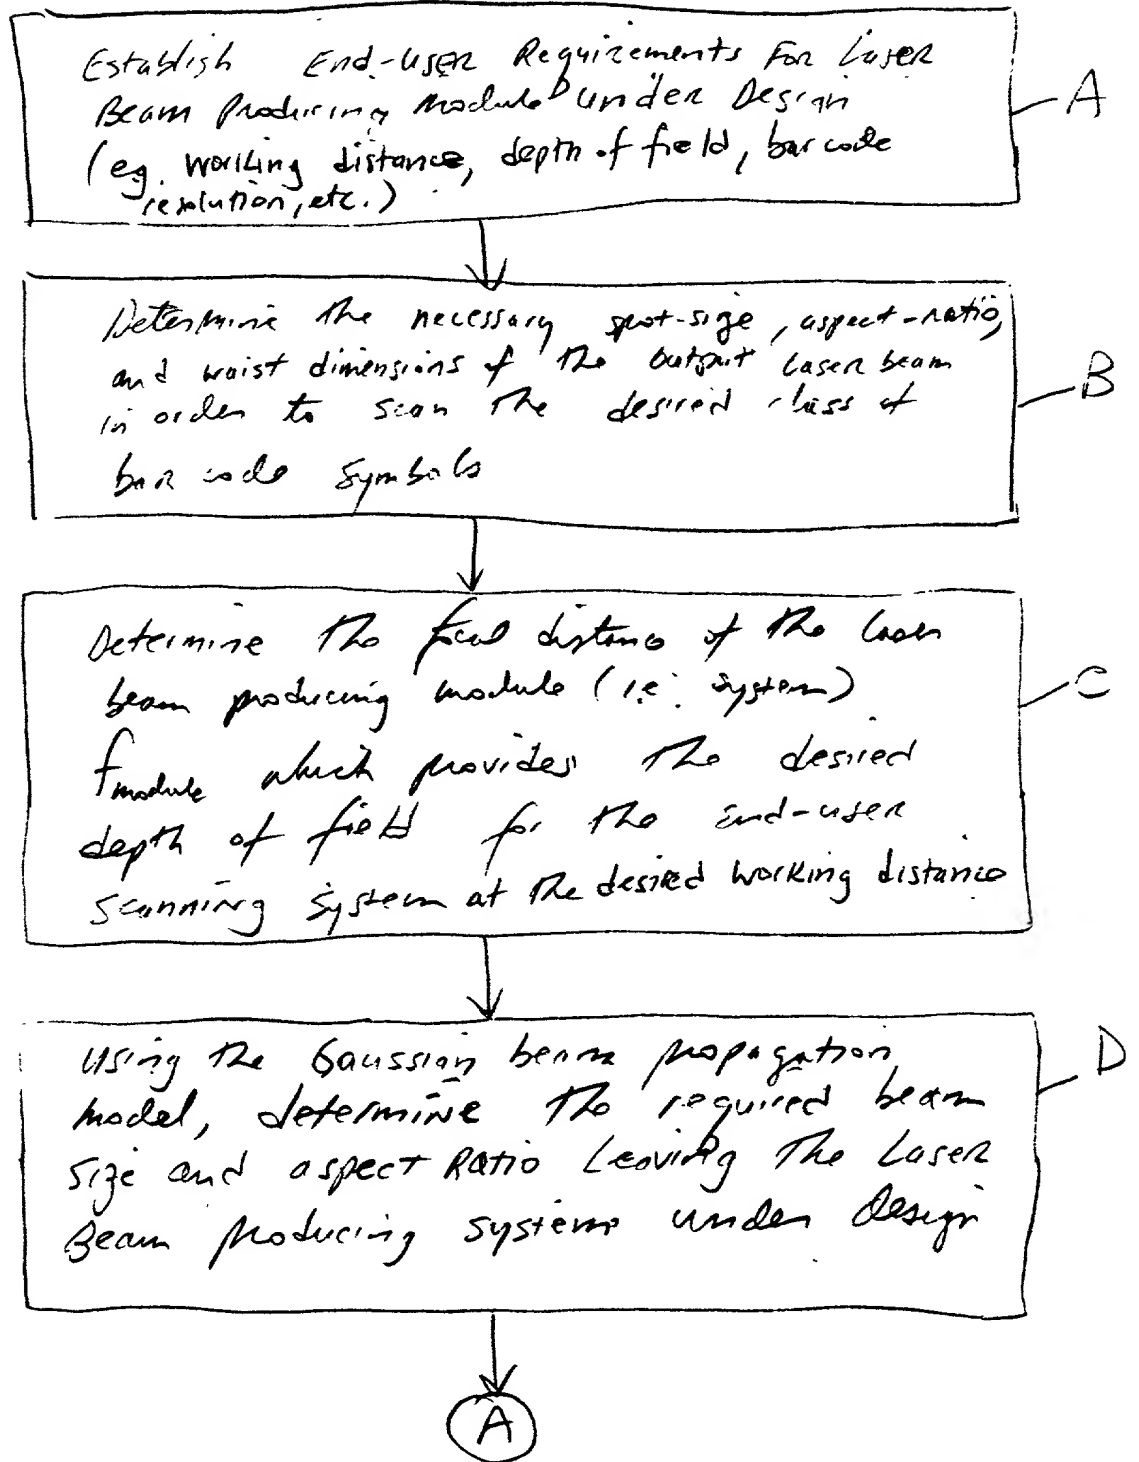 Establish End-User Requirements For Laser
Beam Producing Module Under Design
(eg. working distance, depth of field, bar code
resolution, etc.)
A
Determine the necessary spot-size, aspect-ratio,
and waist dimensions of the output laser beam
in order to scan the desired class of
bar code symbols
B
Determine the focal distance of the laser
beam producing module (i.e. system)
fmodule which provides the desired
depth of field for the End-user
scanning system at the desired working distance
C
Using the Gaussian beam propagation
model, determine the required beam
size and aspect Ratio Leaving The Laser
Beam Producing systems under design
D
A